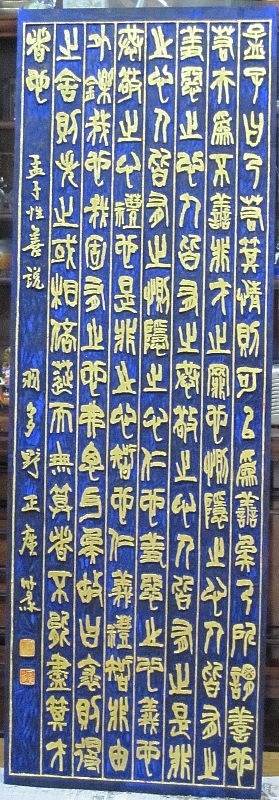 孟子曰乃若其情則可以為善矣乃所謂善也
若夫為不善非才之罪也惻隱之心人皆有之
羞惡之心人皆有之恭敬之心人皆有之是非
之心人皆有之惻隱之心仁也羞惡之心義也
恭敬之心禮也是非之心智也仁義禮智非由
外鑠我也我固有之也弗思耳矣故曰求則得
之舍則失之或相倍蓰而無算者不能盡其才
者也 孟子性善説 羽多野正廣篆